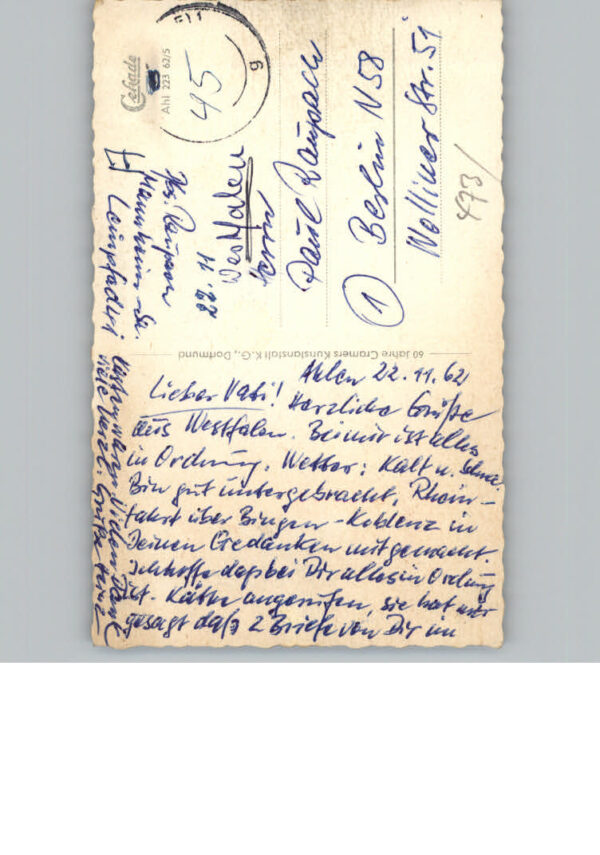 Cekade
Ahl 223 62/5
g
45
Mannheim-Sa.
Lampfadri
22.11
Westfalen
Herrn
Paul Raupach
(1) Berlin N58
Wolliner Str. 51
473/
60 Jahre Cramers Kunstanstalt K.G., Dortmund
Ahlen 22.11.62
Lieber Vati! Herzliche Grüße
aus Westfalen. Bei mir ist alles
in Ordnung. Wetter: Kalt u. Schnee.
Bin gut untergebracht, Rhein-
fahrt über Bingen-Koblenz in
Deinen Gedanken mitgemacht.
Ich hoffe daß bei Dir alles in Ordnung
ist. Käthe angerufen, sie hat mir
gesagt daß 2 Briefe von Dir im
Vielen Dank
viele herzl. Grüße